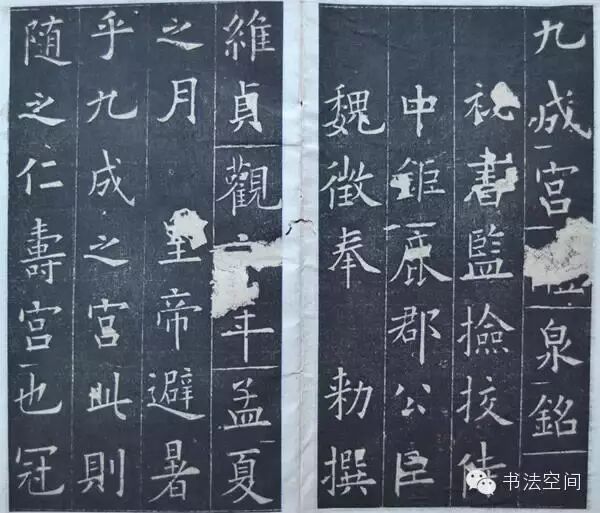 九成宮泉銘
祕書監撿挍侍
中鉅鹿郡公臣
魏徵奉 勅撰
維貞觀六年孟夏
之月 皇帝避暑
乎九成之宮此則
随之仁壽宮也冠
书法空间